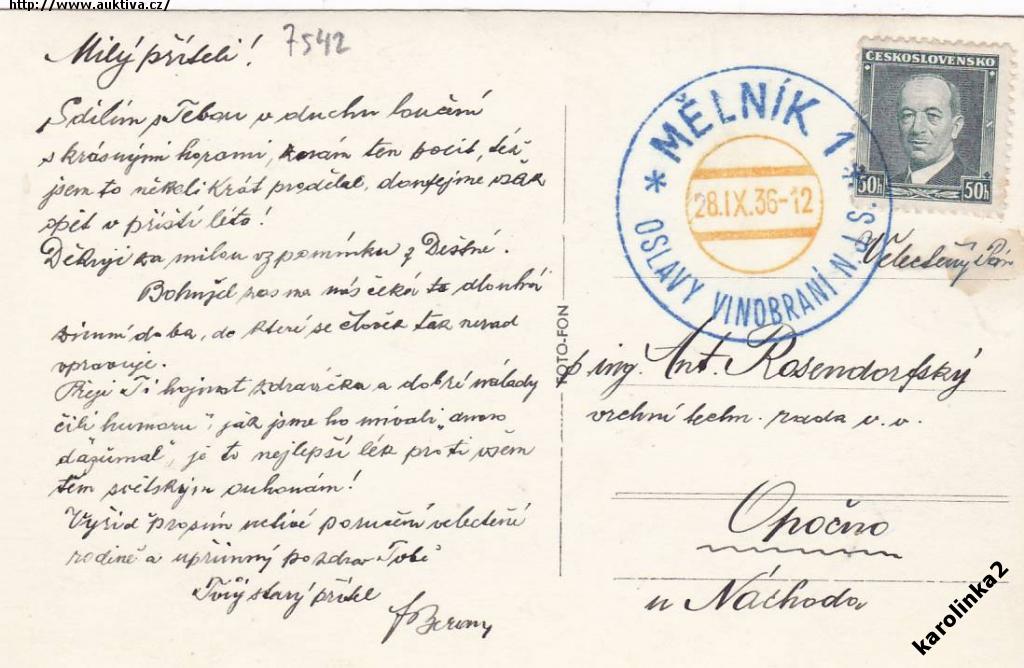 http://www.auktiva.cz/
Milý příteli!
7542
Sdílím s Tebou v duchu loučení
s krásnými horami, znám ten pocit, též
jsem to několikrát prodělal, doufejme však
opět v příští léto!
Děkuji za milou vzpomínku z Deštné.
Bohužel zas na nás čeká ta dlouhá
zimní doba, do které se člověk tak nerad
vpravuje.
Přeji Ti hojnost zdravíčka a dobré nálady
čili humoru, jak jsme ho mívali „anno
dazumal", je to nejlepší lék proti všem
těm světským
Vyřiď prosím uctivé poručení velectěné
rodině a upřímný pozdrav Tobě
Tvůj starý přítel
FOTO-FON
MĚLNÍK 1
28.IX.36-12
OSLAVY VINOBRANÍ N.J.S.
ČESKOSLOVENSKO
50h 50h
Velectěný Pán
p ing. Ant. Rosendorfský
vrchní techn. rada v. v.
Opočno
u Náchoda
karolinka2